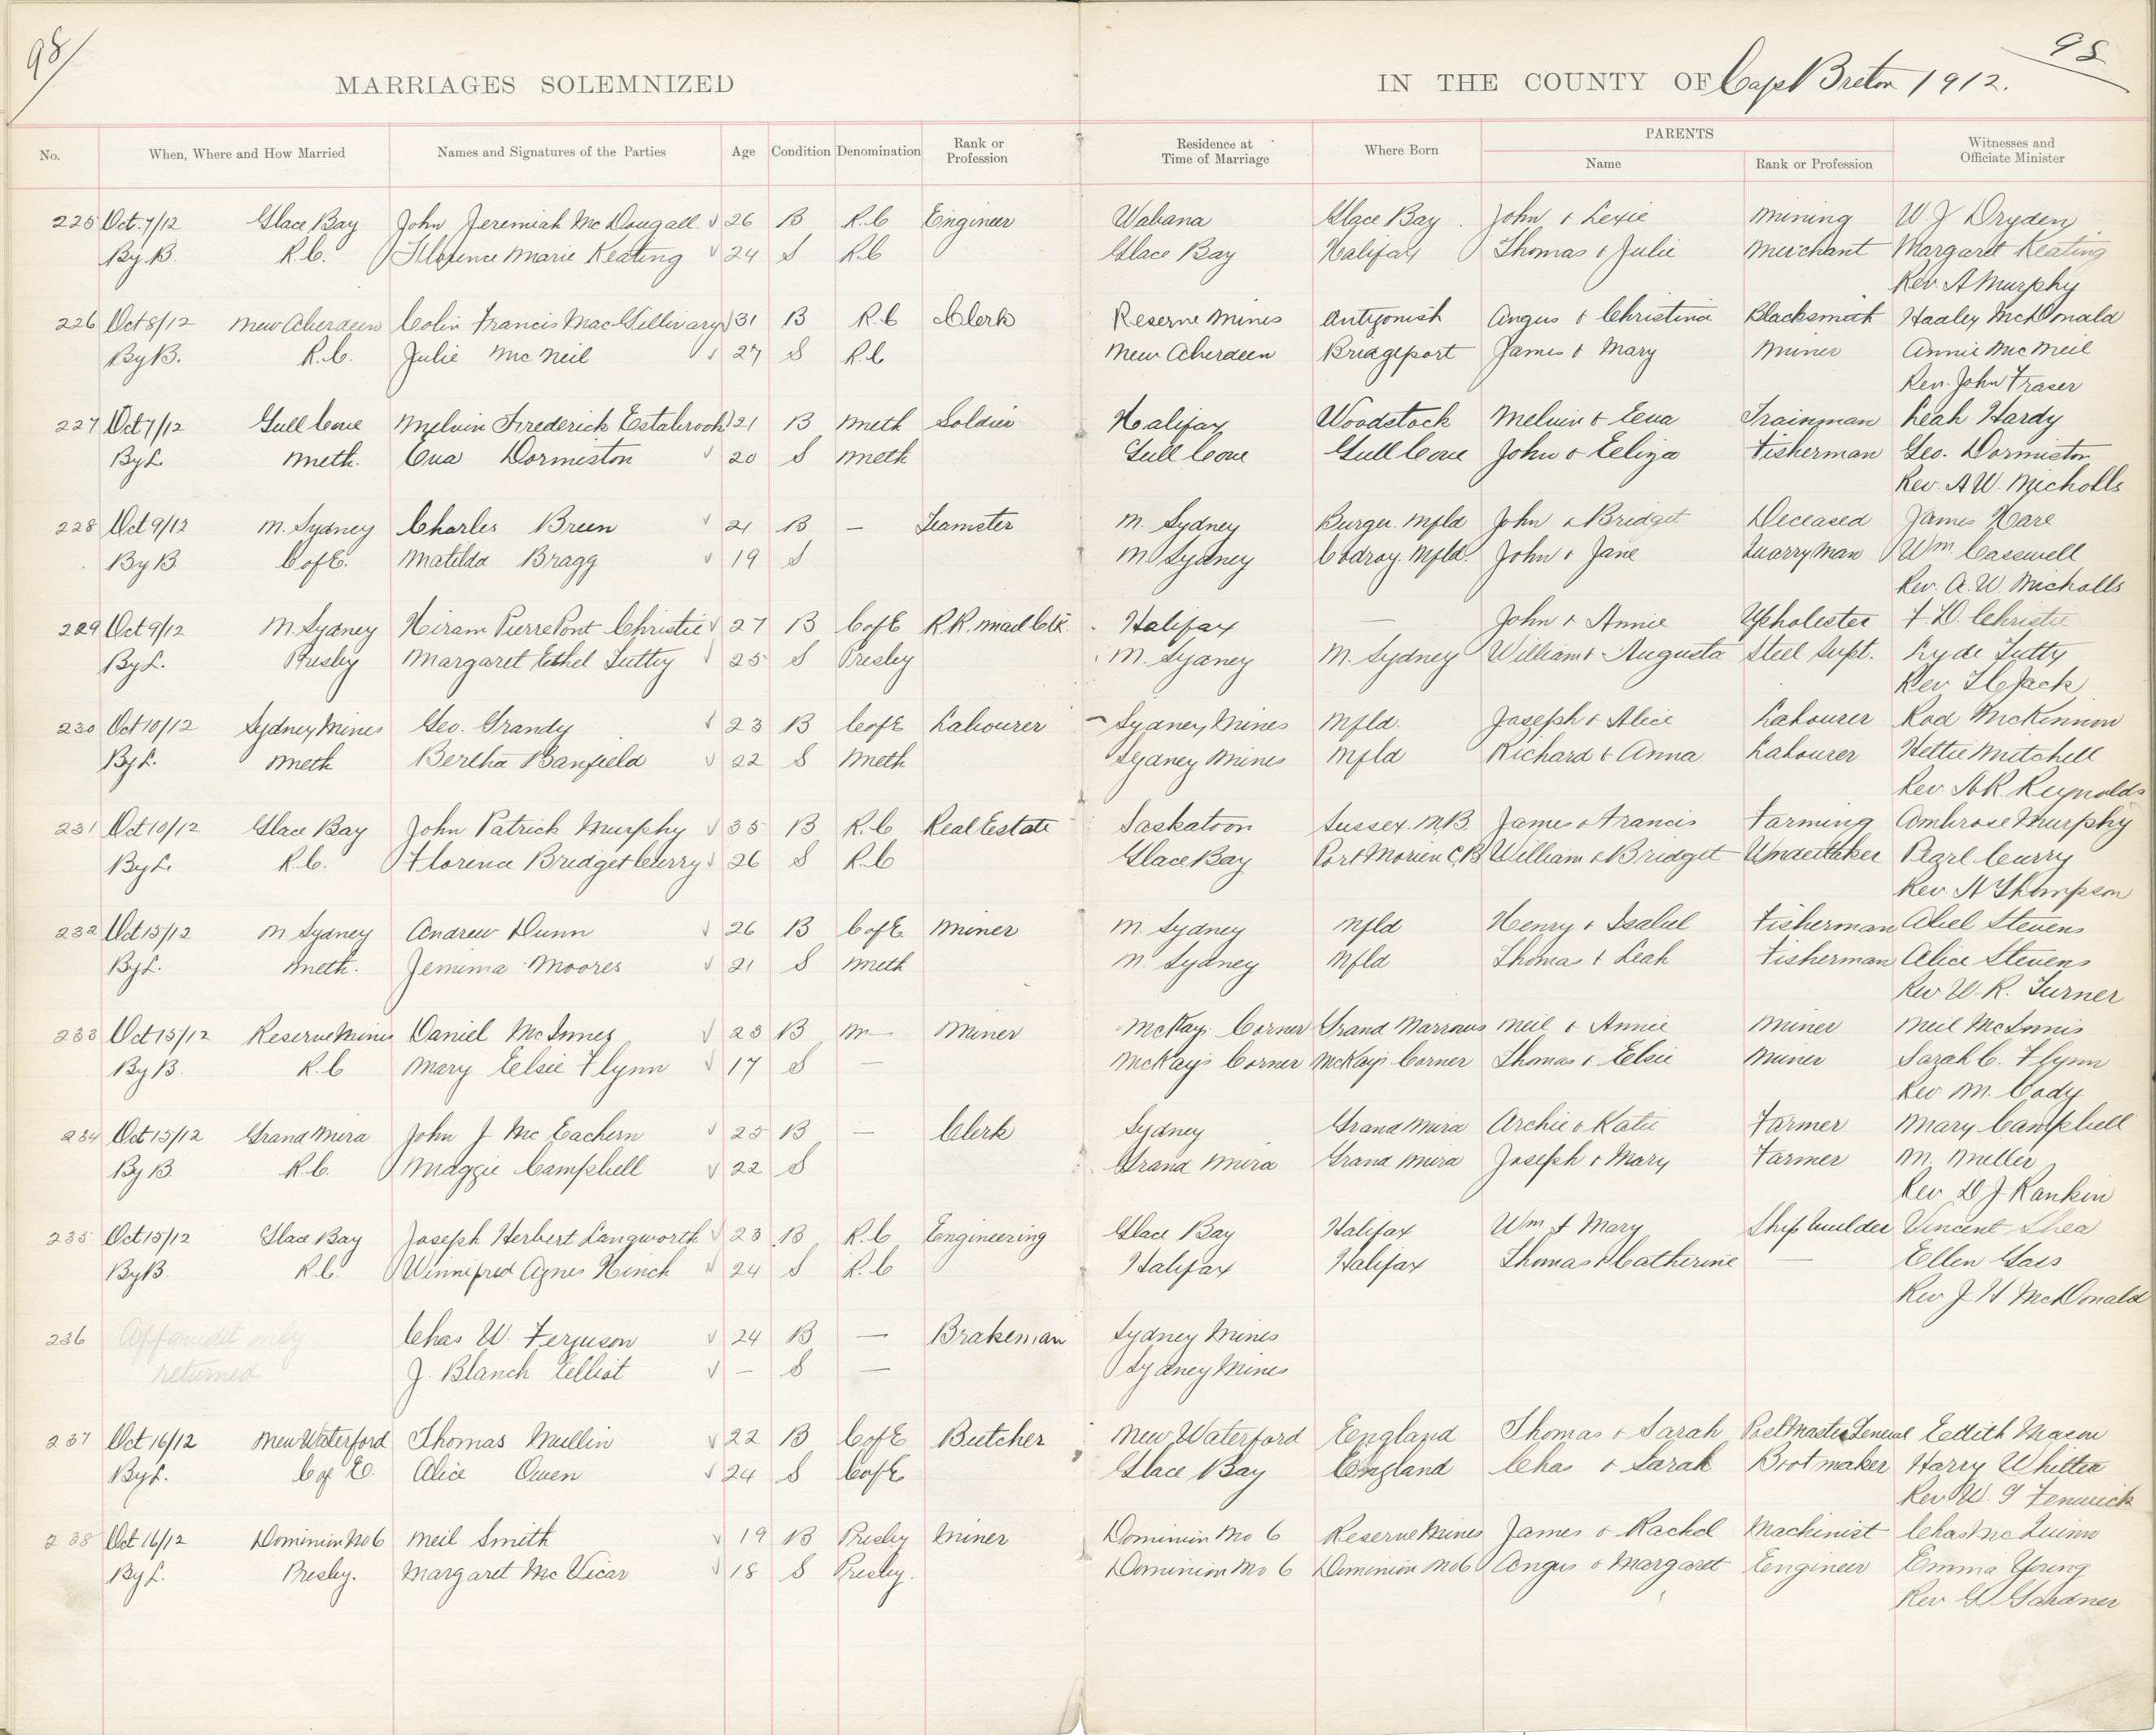 98/
98
MARRIAGES SOLEMNIZED IN THE COUNTY OF Cape Breton 1912.
No. When, Where and How Married Names and Signatures of the Parties Age Condition Denomination Rank or Profession Residence at Time of Marriage Where Born PARENTS Name Rank or Profession Witnesses and Officiate Minister
225 Oct. 7/12 Glace Bay John Jeremiah McDougall √ 26 B R.C Engineer Wabana Glace Bay. John & Lexie Mining W. J Dryden
By B. R.C. Florence Marie Keating √ 24 S R.C Glace Bay Halifax Thomas & Julie Merchant Margaret Keating
Rev. A Murphy
226 Oct 8/12 New Aberdeen Colin Francis MacGillivary √ 31 B R.C Clerk Reserve Mines Antigonish Angus & Christina Blacksmith Hadley McDonald
By B. R.C. Julie McNeil √ 27 S R.C New Aberdeen Bridgeport James & Mary Miner Annie McNeil
Rev. John Fraser
227 Oct 7/12 Gull Cove Melvin Frederick Estabrook √ 21 B Meth Soldier Halifax Woodstock Melvin & Eva Trainman Leah Hardy
By L. Meth. Eva Dormiston √ 20 S Meth Gull Cove Gull Cove John & Eliza Fisherman Geo. Dormiston
Rev. A W. Nicholls
228 Oct 9/12 N. Sydney Charles Breen √ 21 B — Teamster N. Sydney Burgeo. Nfld John & Bridget Deceased James Hare
By B C of E. Matilda Bragg √ 19 S N. Sydney Codroy. Nfld. John & Jane Quarryman Wm Casswell
Rev. A. W. Nicholls
229 Oct 9/12 N. Sydney Hiram PierrePont Christie √ 27 B C of E R.R. Mail Clk. Halifax — John & Annie Upholester F. D. Christie
By L. Presby Margaret Ethel Tutty √ 25 S Presby N. Sydney N. Sydney William & Augusta Steel Supt. Clyde Tutty
Rev T C Jack
230 Oct 10/12 Sydney Mines Geo. Grandy √ 23 B C of E Labourer Sydney Mines Nfld. Joseph & Alice Labourer Rod McKinnon
By L. Meth Bertha Banfield √ 22 S Meth Sydney Mines Nfld Richard & Anna Labourer Hettie Mitchell
Rev. A R. Reynolds
231 Oct 10/12 Glace Bay John Patrick Murphy √ 35 B R.C Real Estate Saskatoon Sussex. N.B. James & Francis Farming Ambrose Murphy
By L. R.C. Florence Bridget Curry √ 26 S R.C Glace Bay Port Morien C.B William & Bridget Undertaker Pearl Curry
Rev. A Thompson
232 Oct 15/12 N Sydney Andrew Dunn √ 26 B C of E Miner N. Sydney Nfld Henry & Isabel Fisherman Abel Stevens
By L. Meth. Jemima Moores √ 21 S Meth N. Sydney Nfld Thomas & Leah Fisherman Alice Stevens
Rev W. R. Turner
233 Oct 15/12 Reserve Mines Daniel McInnes √ 23 B — Miner McKays Corner Grand Narrows Neil & Annie Miner Neil McInnis
By B. R.C Mary Elsie Flynn √ 17 S — McKays Corner McKays Corner Thomas & Elsie Miner Sarah C. Flynn
Rev M. Cody
234 Oct 15/12 Grand Mira John J McEachern √ 25 B — Clerk Sydney Grand Mira Archie & Katie Farmer Mary Campbell
By B R.C. Maggie Campbell √ 22 S Grand Mira Grand Mira Joseph & Mary Farmer M. Miller
Rev D J Rankin
235 Oct 15/12 Glace Bay Joseph Herbert Langworth √ 23 B R.C Engineering Glace Bay Halifax Wm & Mary Shipbuilder Vincent Shea
By B R.C. Winnifred Agnes Hinch √ 24 S R.C Halifax Halifax Thomas & Catherine — Ellen
Rev J H McDonald
236 Affavidit only Chas W. Ferguson √ 24 B — Brakeman Sydney Mines
returned J. Blanch Elliot √ — S — Sydney Mines
237 Oct 16/12 New Waterford Thomas Mullin √ 22 B C of E Butcher New Waterford England Thomas & Sarah Post Master General Edith Macon
By L. C of E. Alice Owen √ 24 S C of E Glace Bay England Chas & Sarah Bootmaker Harry Whitter
Rev W. G Fenwick
238 Oct 16/12 Dominion No 6 Neil Smith √ 19 B Presby Miner Dominion No 6 Reserve Mines James & Rachel Machinist Chas McQuinn
By L. Presby. Margaret McVicar √ 18 S Presby. Dominion No 6 Dominion No 6 Angus & Margaret Engineer Emma Young
Rev G Gardner